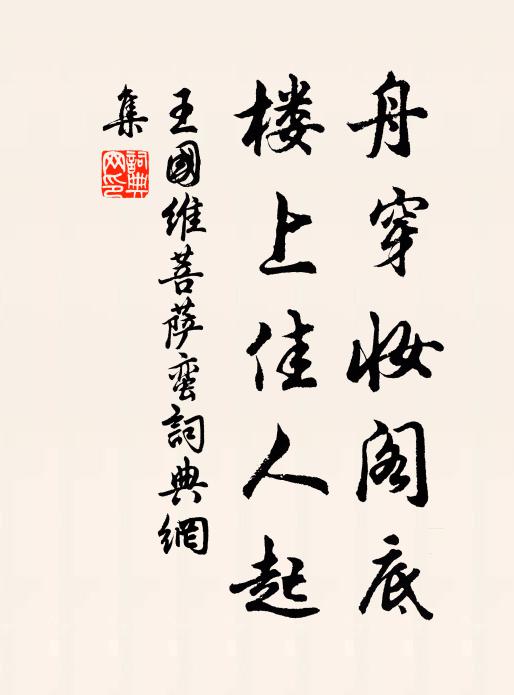 舟穿妆阁底
楼上佳人起
王國维菩萨蛮詞典網
集
詞典
网印